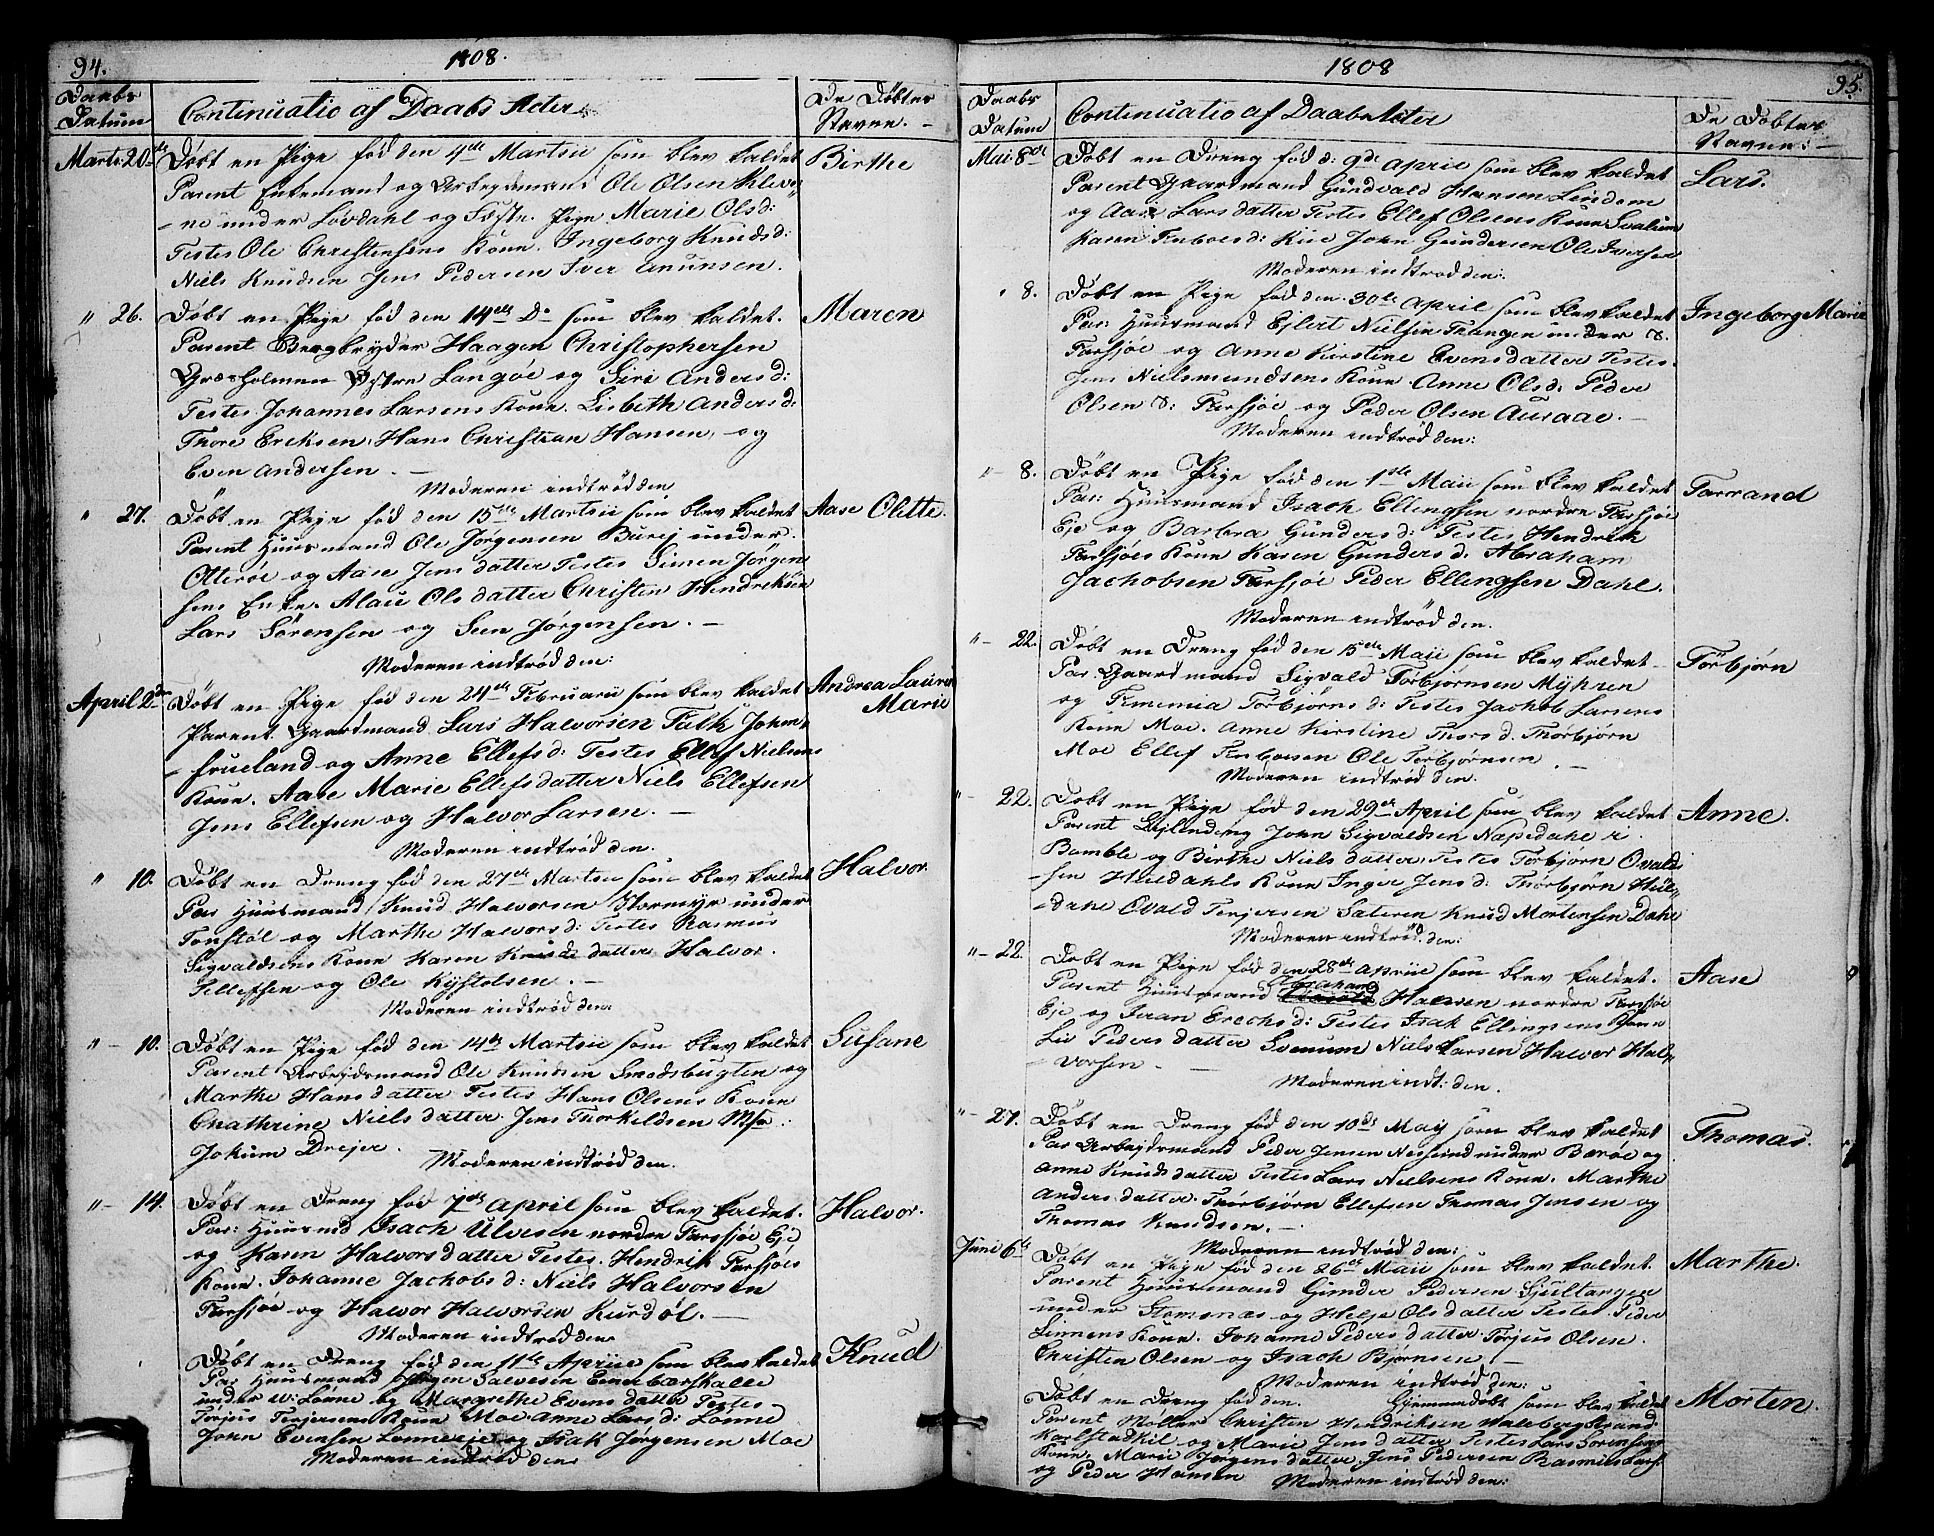 94.
1808.
Daabs Datum
Continuatio af Daabs Acter
De Döbtes Navne.
Marts 20de Döbt en Pige föd den 4de Martsii som blev kaldet Birthe
Parent Enkemand og Arbeydsmand Ole Olsen Kleve-
-ne under Lövdahl og Fæste Pige Marie Olsd:
Testes Ole Christensens Kone. Ingeborg Knudsd:
Niels Knudsen Jens Pedersen Iver Anunsen.
" 26. Döbt en Pige föd den 14de Do som blev kaldet. Maren
Parent Bergbryder Haagen Christophersen
Græsholmen Östre Langöe og Siri Andersd:
Testes Johannes Larsens Kone. Lisbeth Andersd:
Thore Eriksen, Hans Christian Hansen, og
Even Andersen. —
Moderen indtröd den
" 27. Döbt en Pige föd den 15de Martsii som blev kaldet Aase Olette.
Parent Huusmand Ole Jörgensen Burej under.
Otteröe og Aase Jensdatter Testes Simen Jörgen
sens Enke. Alau Olsdatter Christen Hendriksen
Lars Sörensen og Sven Jörgensen. —
Moderen indtröd den:
April 2den Döbt en Pige föd den 24de Februarii som blev kaldet Andrea Laurin Marie
Parent. Gaardmand Lars Halvorsen Falk Jom-
frueland og Anne Ellefsd: Testes Ellef Nielsens
Kone. Aase Marie Ellefsdatter Niels Ellefsen
Jens Ellefsen og Halvor Larsen. —
Moderen indtröd den.
" 10. Döbt en Dreng föd den 27de Martsii som blev kaldet Halvor.
Par Huusmand Knud Halvorsen Hornmyr under
Tonstöl og Marthe Halvorsd: Testes Rasmus
Sigvaldsens Kone Karen Knudsdatter Halvor.
Tellefsen og Ole Kjostolsen. —
Moderen indtröd den.
" — 10. Döbt en Pige föd den 14de Martsii som blev kaldet Susane
Parent Arbejdsmand Ole Knudsen Smedsbugten og
Marthe Hansdatter Testes Hans Olsens Kone
Chathrine Nielsdatter. Jens Thorkildsen
Jokum Drejer.
Moderen indtröd den.
" — 14. Döbt en Dreng föd 7de April som blev kaldet. Halvor.
Par: Huusmd Isach Ulvesen nordre Farsjöe Eje
og Karen Halvorsdatter Testes. Hendrik Farsjöes
Kone. Johanne Jachobsd: Niels Halvorsen
Farsjöe og Halvor Halvorsen Kurdöl. —
Moderen indtröd den
Döbt en Dreng föd den 11te Aprilii som blev kaldet Knud
Par Huusmand Jörgen Salvesen Enerbærskalle
under W: Lönne og Margrethe Evensdatter Testes
Torjus Terjersens Kone Moe Anne Larsd: Lönne
John Evensen Lönnerie og Isak Jörgensen Moe
Moderen indtröd den
1808
95.
Daabs Datum
Continuatio af Daabs Acter
De Döbtes Navne:
Mai 8de Döbt en Dreng föd d: 9de April som blev kaldet Lars.
Parent Gaardmand Gundvald Hansen Lindom
og Aase Larsdatter Testes Ellef Olsens Kone Svalum
Karen Torboesd: Kiie John Gundersen Ole Iversen
Moderen indtröd den:
" 8. Döbt en Pige föd den 30te April som blev kaldet Ingeborg Marie
Par: Huusmand Ejlert Nielsen Tangen under S.
Farsjöe og Anne Kirstine Evensdatter Testes.
Jens Nielsmundsens Kone. Anne Olsd: Peder
Olsen S: Farsjöe og Peder Olsen Auraae. —
Moderen indtröd den:
" — 8. Döbt en Pige föd den 1ste Maii som blev kaldet Tarrand
Par: Huusmand Isach Ellingsen nordre Farsjöe
Eje og Barbra Gundersd: Testes Hendrik
Farsjöes Kone Karen Gundersd: Abraham
Jachobsen Farsjöe Peder Ellingsen Dahl.
Moderen indtröd den.
" — 22. Döbt en Dreng föd den 15de Maii som blev kaldet Törbjörn
Par. Gaardmand Sigvald Törbjörnsen Myhren
og Femmia Törbjörnsd: Testes Jachob Larsens
Kone Moe. Anne Kirstine Thorsd. Thorbjörn
Moe Ellef Torboesen Ole Törbjörnsen. —
Moderen indtröd den.
— 22. Döbt en Pige föd den 29de April som blev kaldet Anne.
Parent Leilending John Sigvaldsen Napedahl i
Bamble og Birthe Nielsdatter. Testes Torbjörn Ovald-
sen Huldahls Kone Inger Jensd: Thörbjörn Hül-
-dahl Ovald Terjersen Sateren Knud Mortensen Dahl
Moderen indtröd den:
" — 22. Döbt en Pige föd den 28de Aprili som blev kaldet. Aase
Parent Huusmand Abraham Halvorsen nordre Farsjöe
Eje og Jraan Erechsd: Testes Isak Ellingsens Kone
Liv Pedersdatter Svenum Niels Larsen Halvor Hal-
-vorsen. —
Moderen indt: den.
" — 27. Döbt en Dreng föd den 10de May som blev kaldet Thomas.
Par Arbejdsmand Peder Jensen Nessund under Baröe og
Anne Knudsdatter Testes Lars Nielsens Kone. Marthe
Andersdatter. Thörbjörn Ellefsen Thomas Jensen og
Thomas Knudsen. —
Moderen indtröd den:
Juni 6te Döbt en Pige föd den 26de Maii som blev kaldet. Marthe.
Parent Huusmand Gunder Pedersen Sjultangen
under Stomenæs og Helje Olsdatter Testes Peder
Linnens Kone. Johanne Pedersdatter. Torjus Olsen.
Christen Olsen og Isach Björnsen. —
Moderen indtröd den:
Döbt en Dreng föd den. Hjemmedöbt som blev kaldet Morten.
Parent Möller Christen Hendriksen Waleberg Strand.
Karlstadkil og Marie Jensdatter Testes Lars Sorensens
Kone Marie Jörgensdatter. Jens Pedersen Rasmus Lars:
og Peder Hansen
Moderen indtröd den: